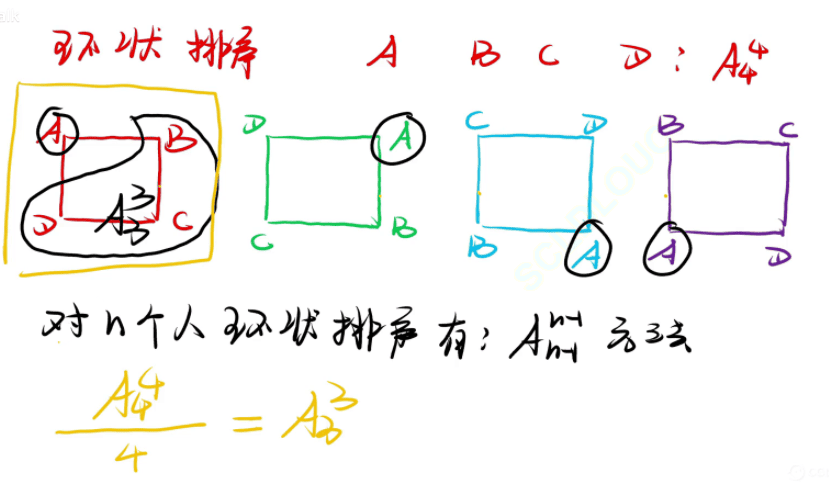 环状排序 A B C D : A₄⁴
A B D A C D B C
A₃³
D C C B B A A D
对n个人环状排序有: Aₙ₋₁ⁿ⁻¹ 方法
A₄⁴/4 = A₃³